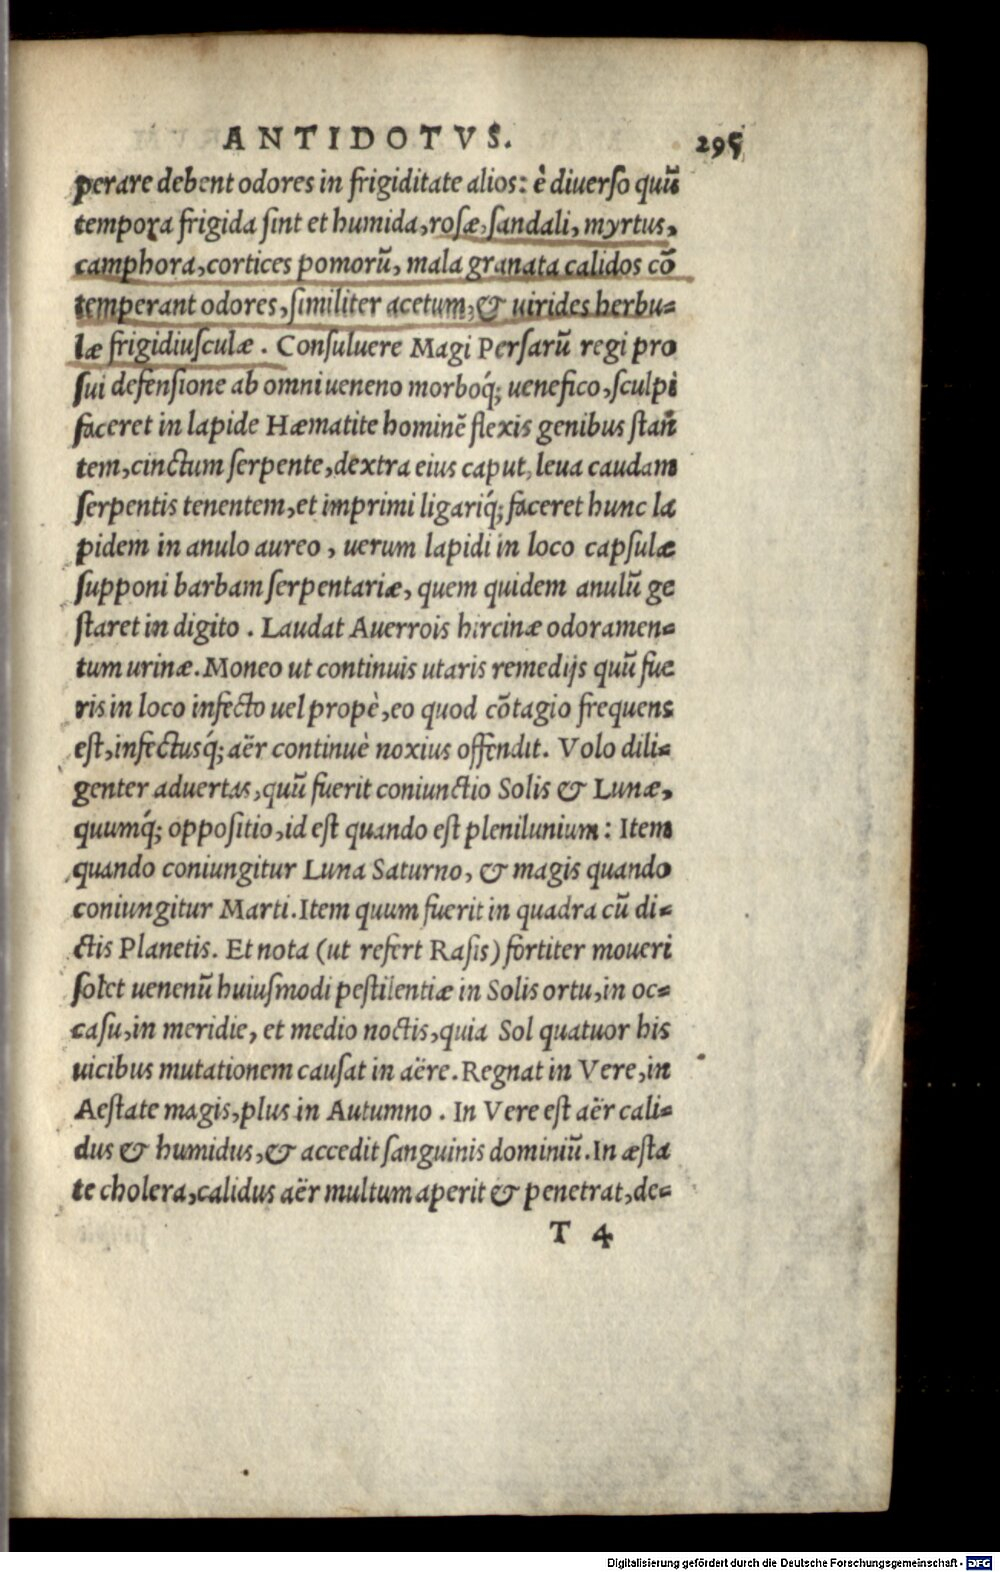 ANTIDOTVS. 295
perare debent odores in frigiditate alios: è diuerſo quũ
tempora frigida ſint et humida, roſæ, ſandali, myrtus,
camphora, cortices pomorũ, mala granata calidos cõ
temperant odores, ſimiliter acetum, & uirides herbu-
læ frigidiuſculæ. Conſuluere Magi Perſarũ regi pro
ſui defenſione ab omni ueneno morboq́; uenefico, ſculpi
faceret in lapide Hæmatite hominẽ flexis genibus ſtañ
tem, cinctum ſerpente, dextra eius caput, leua caudam
ſerpentis tenentem, et imprimi ligariq́; faceret hunc la
pidem in anulo aureo, uerum lapidi in loco capſulæ
ſupponi barbam ſerpentariæ, quem quidem anulũ ge
ſtaret in digito. Laudat Auerrois hircinæ odoramen-
tum urinæ. Moneo ut continuis utaris remedijs quũ fue
ris in loco infecto uel propè, eo quod cõtagio frequens
eſt, infectusq́; aër continuè noxius offendit. Volo dili-
genter aduertas, quũ fuerit coniunctio Solis & Lunæ,
quumq́; oppoſitio, id eſt quando eſt plenilunium: Item
quando coniungitur Luna Saturno, & magis quando
coniungitur Marti. Item quum fuerit in quadra cũ di-
ctis Planetis. Et nota (ut refert Raſis) fortiter moueri
ſolet uenenũ huiuſmodi peſtilentiæ in Solis ortu, in oc-
caſu, in meridie, et medio noctis, quia Sol quatuor his
uicibus mutationem cauſat in aëre. Regnat in Vere, in
Aeſtate magis, plus in Autumno. In Vere eſt aër cali-
dus & humidus, & accedit ſanguinis dominiũ. In æſta
te cholera, calidus aër multum aperit & penetrat, de-
T 4
Digitalisierung gefördert durch die Deutsche Forschungsgemeinschaft - DFG